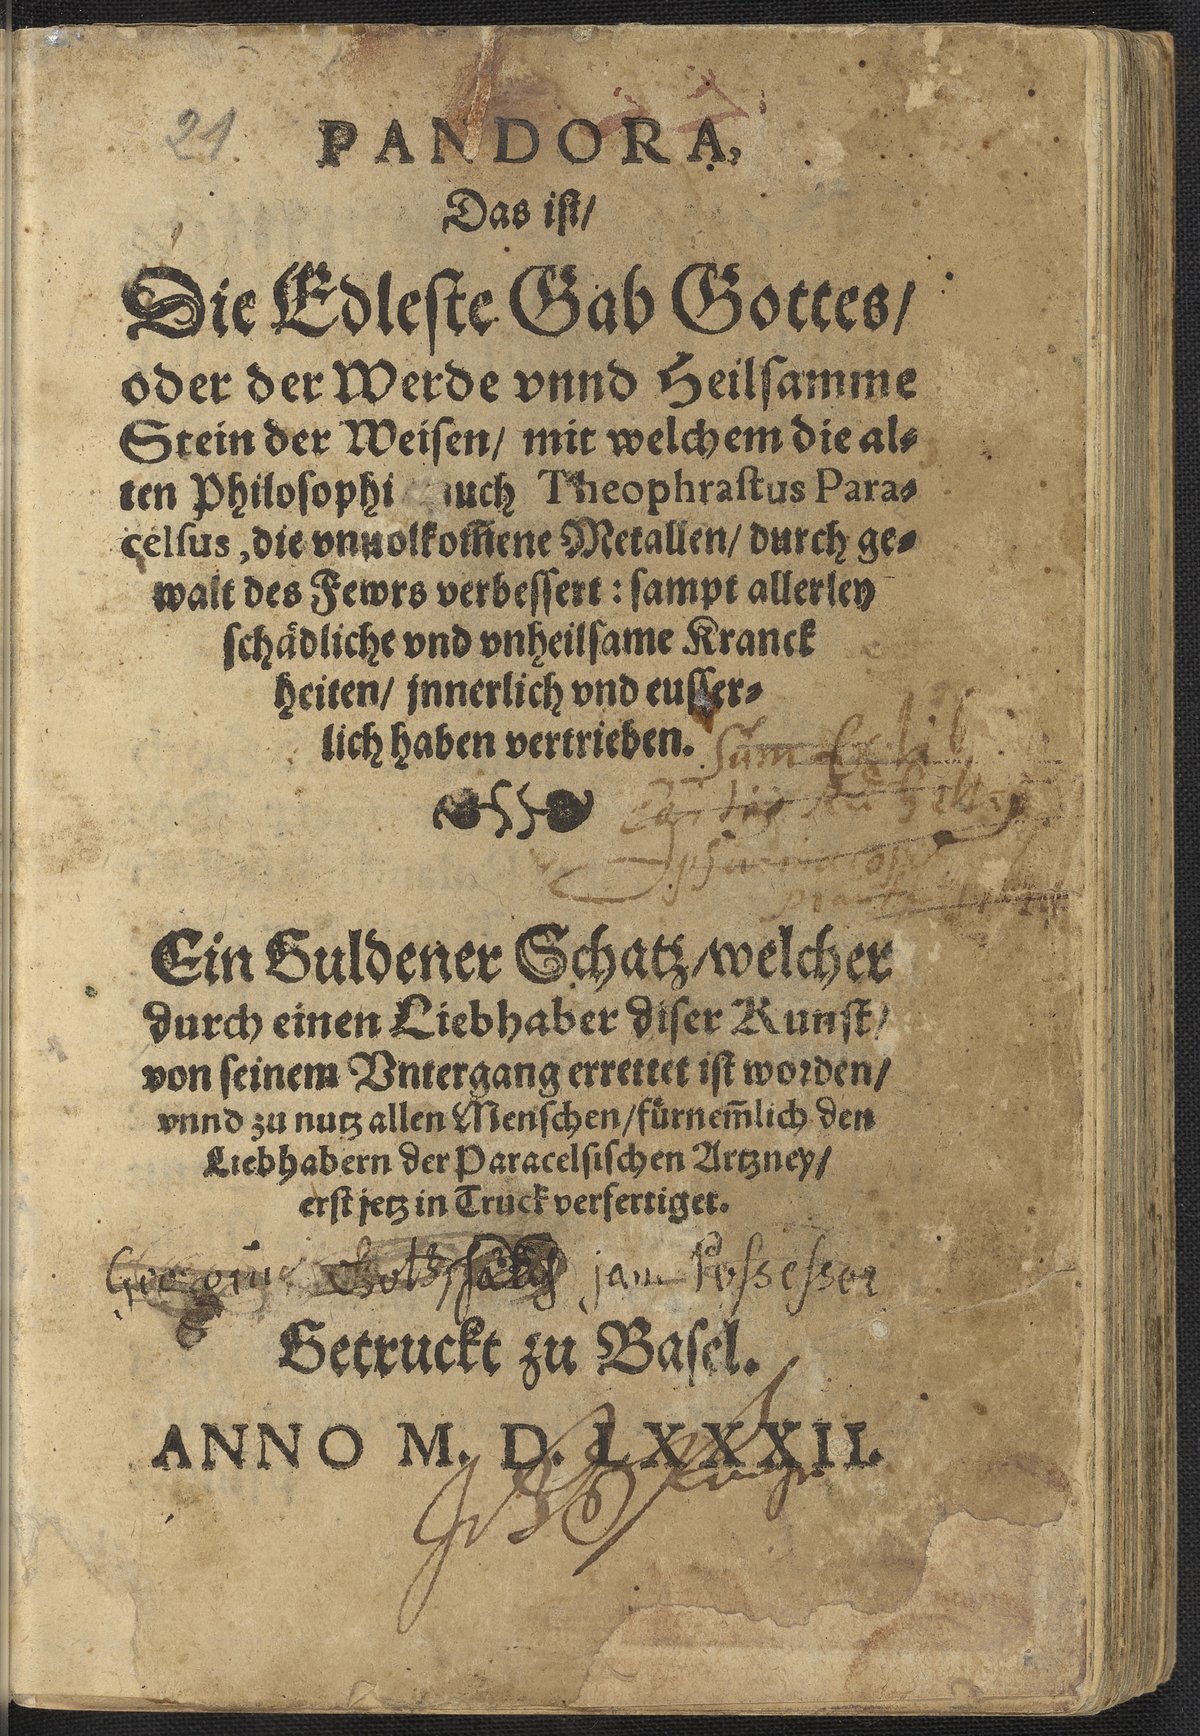 21
PANDORA,
Das ist/
Die Edleste Gab Gottes/
oder der Werde vnnd Heilsamme
Stein der Weisen/ mit welchem die al⸗
ten Philosophi auch Theophrastus Para⸗
celsus, die vnuolkom̄ene Metallen/ durch ge⸗
walt des Fewrs verbessert: sampt allerley
schädliche vnd vnheilsame Kranck
heiten/ jnnerlich vnd eusser⸗
lich haben vertrieben.
Sum
Ein Guldener Schatz/welcher
durch einen Liebhaber diser Kunst/
von seinem Vntergang errettet ist worden/
vnnd zu nutz allen Menschen/fürnem̄lich den
Liebhabern der Paracelsischen Artzney/
erst jetz in Truck verfertiget.
Georgius jam Possessor
Getruckt zu Basel.
ANNO M. D. LXXXII.